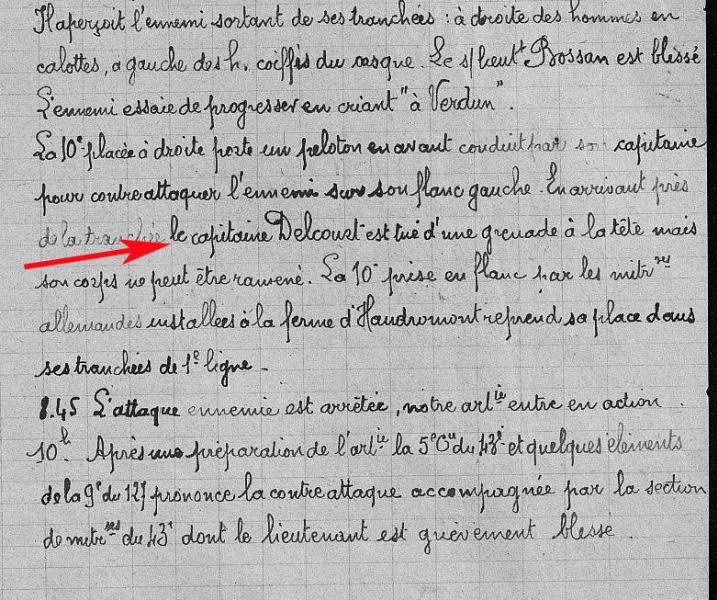 Il aperçoit l'ennemi sortant de ses tranchées : à droite des hommes en
calottes, a gauche des h. coiffés du casque. Le s/lieut^t Bossan est blessé
L'ennemi essaie de progresser en criant "à Verdun".
La 10^e placée à droite porte un peloton en avant conduit par son capitaine
pour contre attaquer l'ennemi sur son flanc gauche. En arrivant près
de la tranchée le capitaine Delcourt est tué d'une grenade à la tête mais
son corps ne peut être ramené. La 10^e prise en flanc par les mitr^ses
allemandes installées à la ferme d'Haudromont reprend sa place dans
ses tranchées de 1^e ligne -
8.45 L'attaque ennemie est arrêtée, notre art^ie entre en action.
10^h. Après une préparation de l'art^ie la 5^e C^ie du 43^e et quelques éléments
de la 9^e du 127 prononce la contre attaque accompagnée par la section
de mitr^ses du 43^e dont le lieutenant est guèvement blessé.